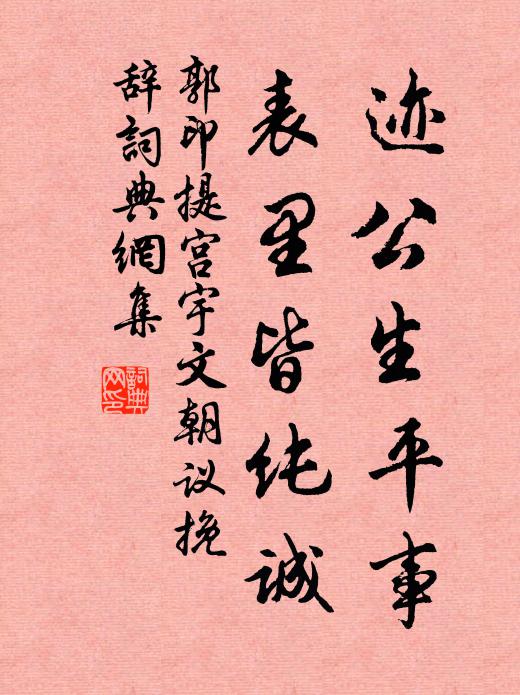 迹公生平事
表里皆纯诚
郭印提宫宇文朝议挽
辞詞典網集
詞典网印